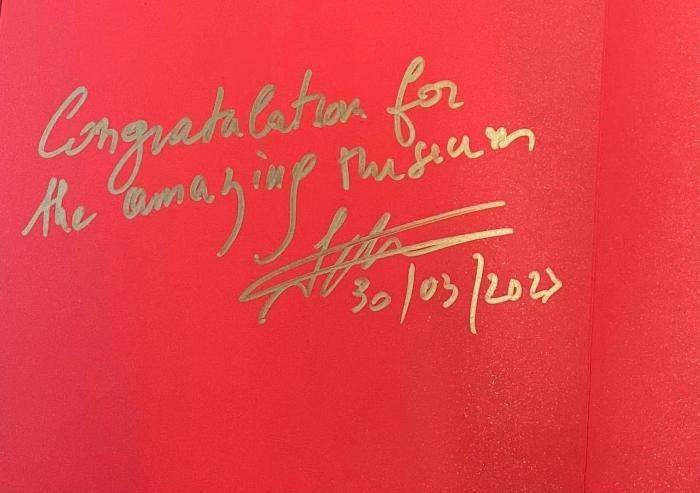 Congratulation for
the amazing Museum
30/03/2023